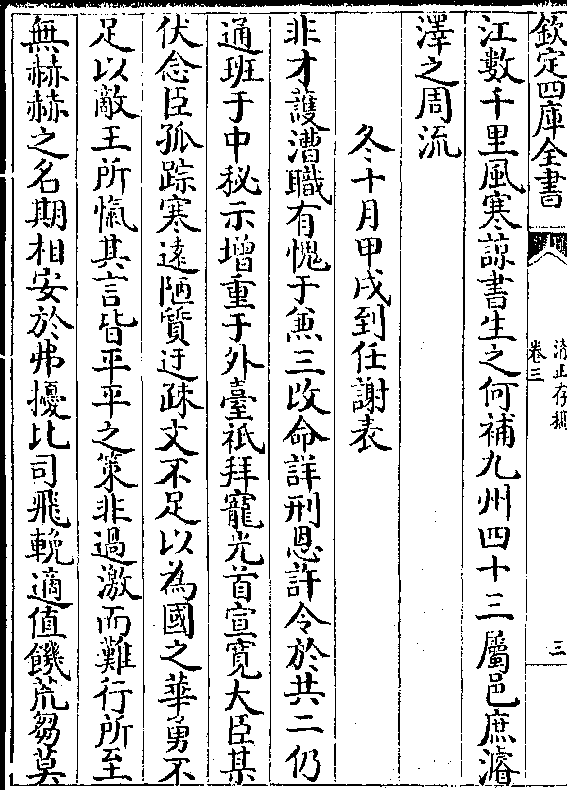 欽定四庫全書
清正存稿
卷三
三
江數千里風寒諒書生之何補九州四十三屬邑庶濬
澤之周流
冬十月甲戌到任謝表
非才護漕職有愧于兼三改命詳刑恩許令於共二仍
通班于中秘示增重于外臺祗拜寵光首宣寬大臣某
伏念臣孤踪寒遠陋質迂疎文不足以為國之華勇不
足以敵王所愾其言皆平平之策非過激而難行所至
無赫赫之名期相安於弗擾比司飛輓適值饑荒芻莫